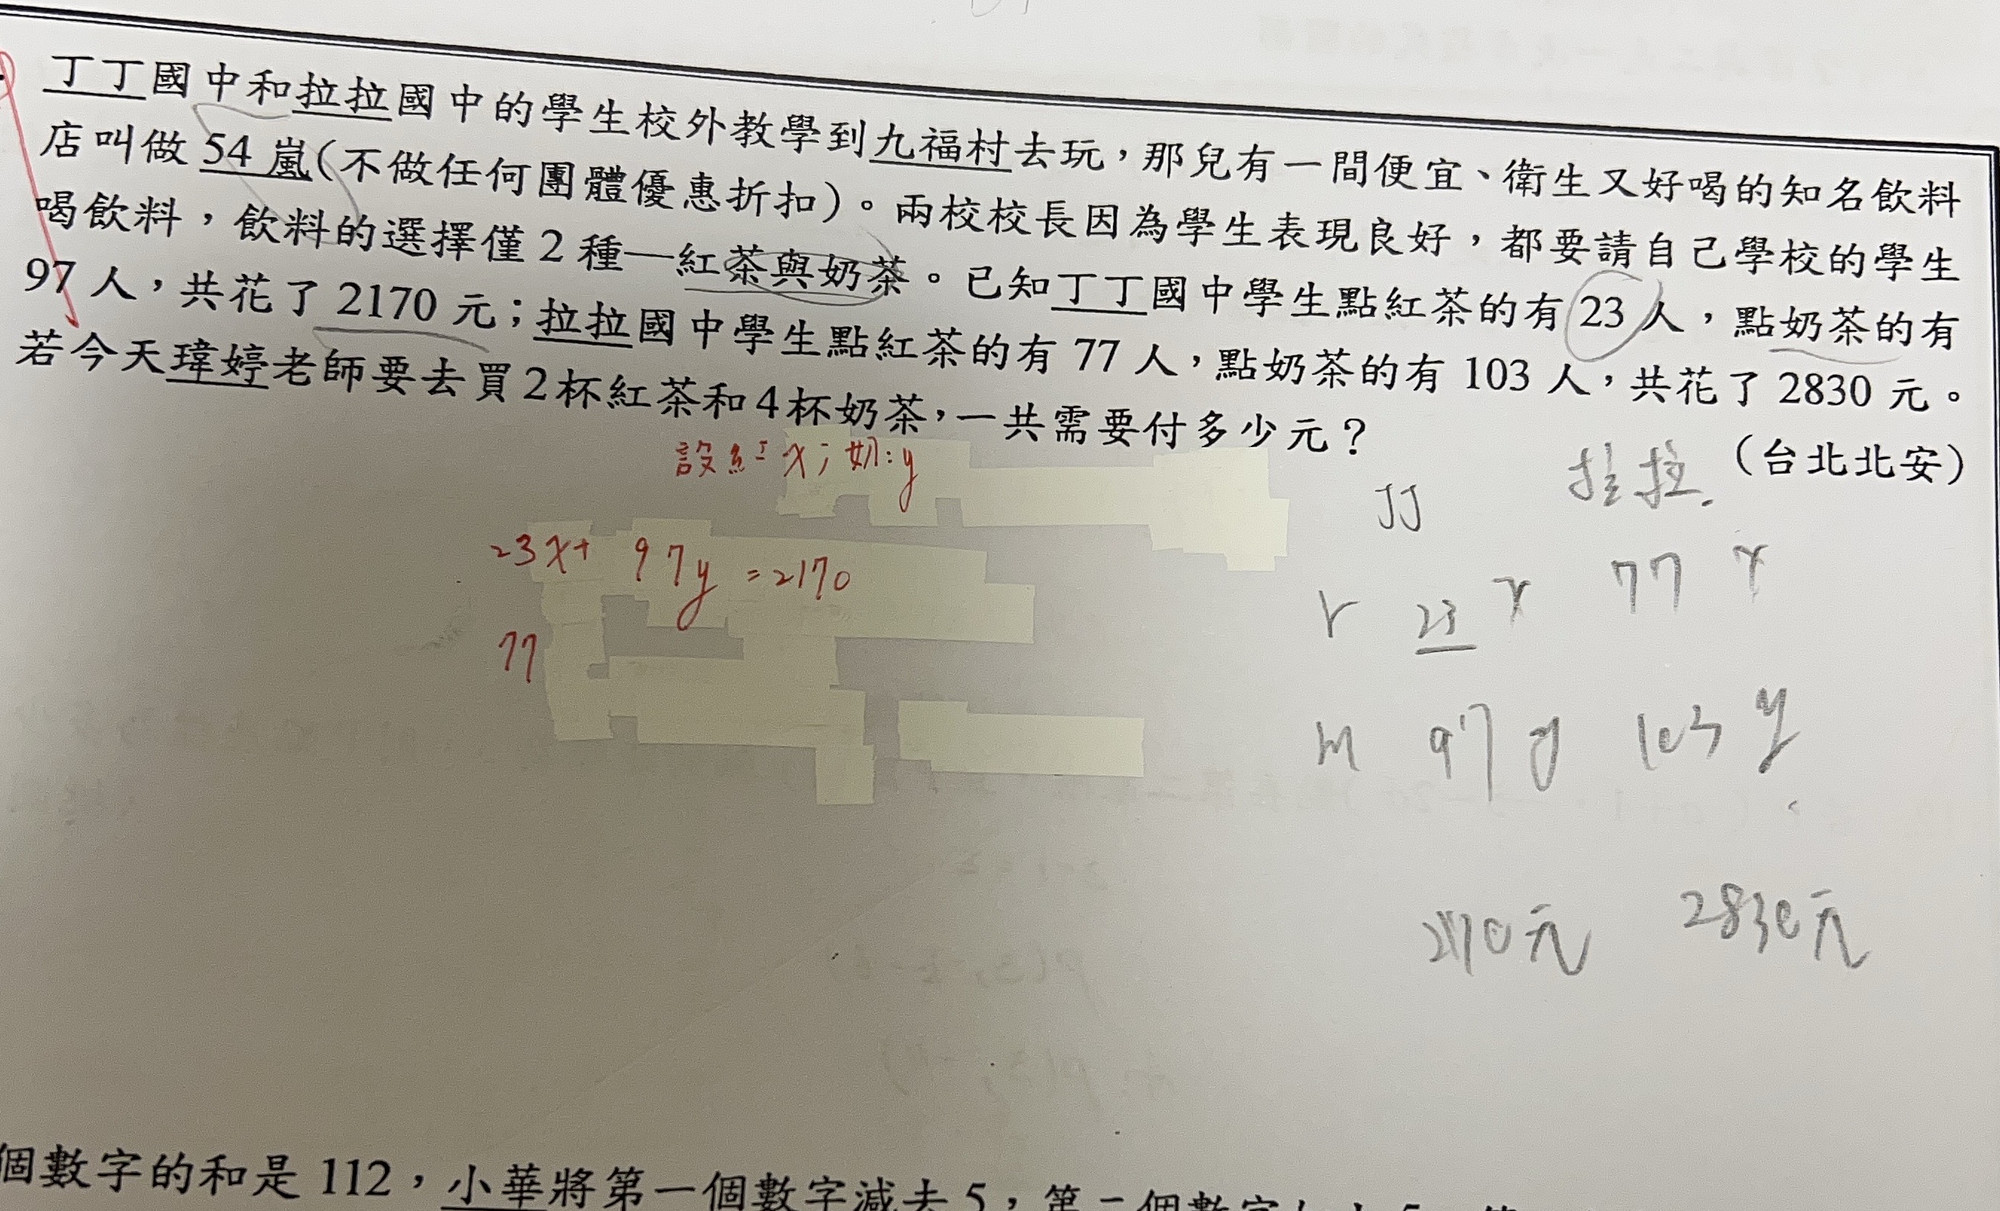 丁丁國中和拉拉國中的學生校外教學到九福村去玩，那兒有一間便宜、衛生又好喝的知名飲料
店叫做54嵐(不做任何團體優惠折扣)。兩校校長因為學生表現良好，都要請自己學校的學生
喝飲料，飲料的選擇僅2種—紅茶與奶茶。已知丁丁國中學生點紅茶的有23人，點奶茶的有
97人，共花了2170元；拉拉國中學生點紅茶的有77人，點奶茶的有103人，共花了2830元。
若今天瑋婷老師要去買2杯紅茶和4杯奶茶，一共需要付多少元？
(台北北安)
設紅=x；奶:y
23x+97y=2170
77
JJ 拉拉.
r 23x 77x
m 97y 103y
2170元 2830元
個數字的和是112，小華將第一個數字減去5，第二個數字